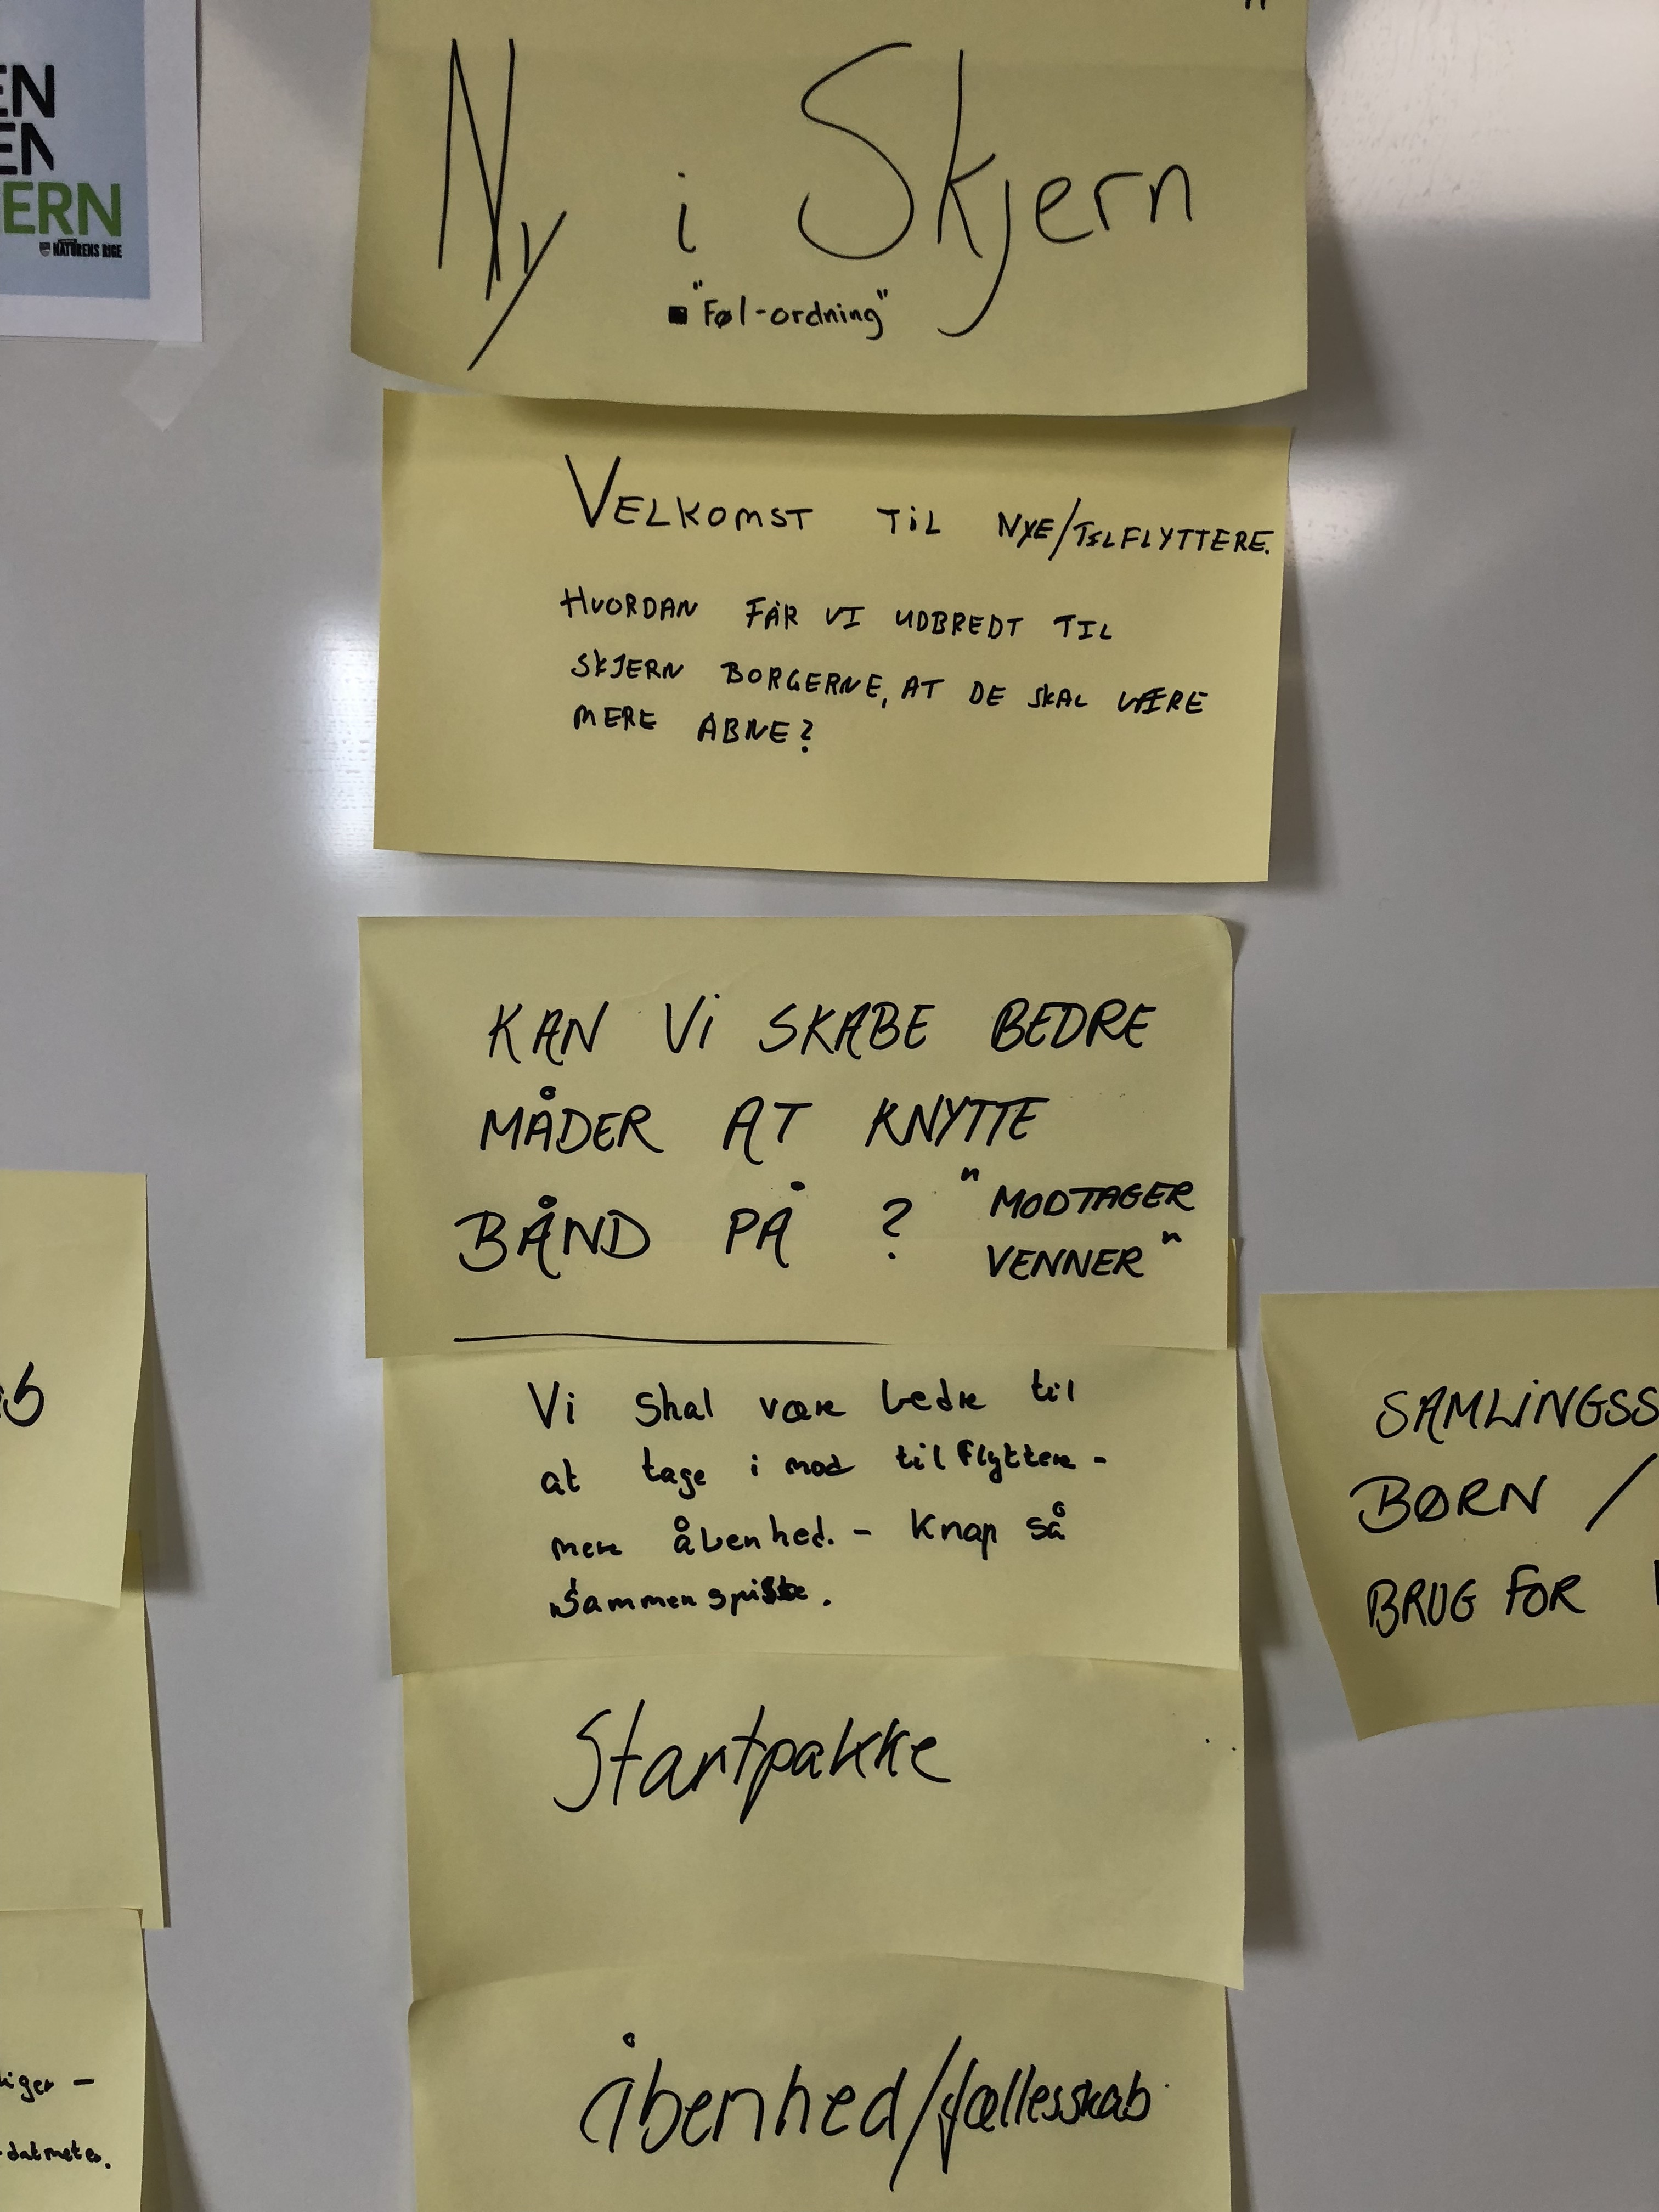 EN
EN
ERN
NATURENS RIGE
Ny i Skjern
"Føl-ordning"
VELKOMST TIL NYE/TILFLYTTERE.
HVORDAN FÅR VI UDBREDT TIL
SKJERN BORGERNE, AT DE SKAL VÆRE
MERE ÅBNE?
KAN Vi SKABE BEDRE
MÅDER AT KNYTTE
BÅND PÅ ? "MODTAGER
VENNER"
Vi skal være bedre til
at tage i mod tilflyttere -
mere åbenhed. - Knap så
sammenspiste.
Startpakke
åbenhed/fællesskab
SAMLINGSS
BØRN /
BRUG FOR
iger -
datmete.